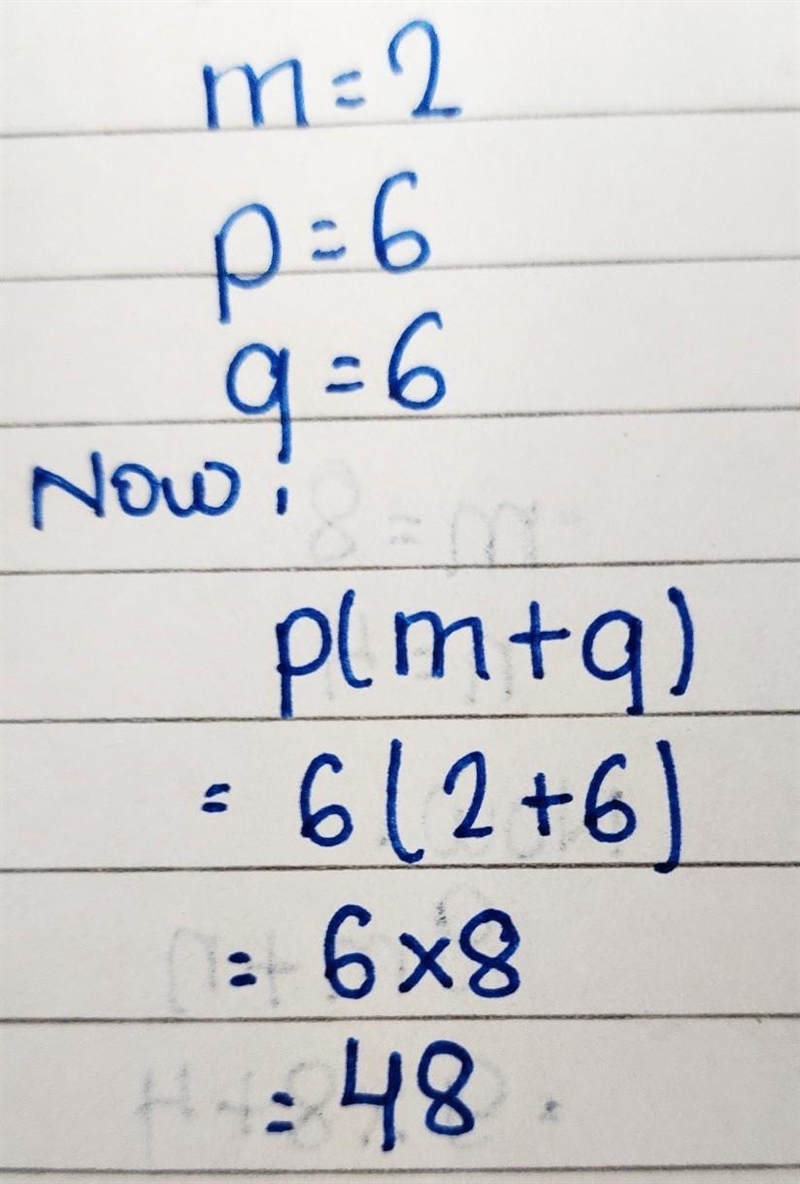 m = 2
p = 6
q = 6
Now:
p(m+q)
= 6(2+6)
= 6×8
= 48